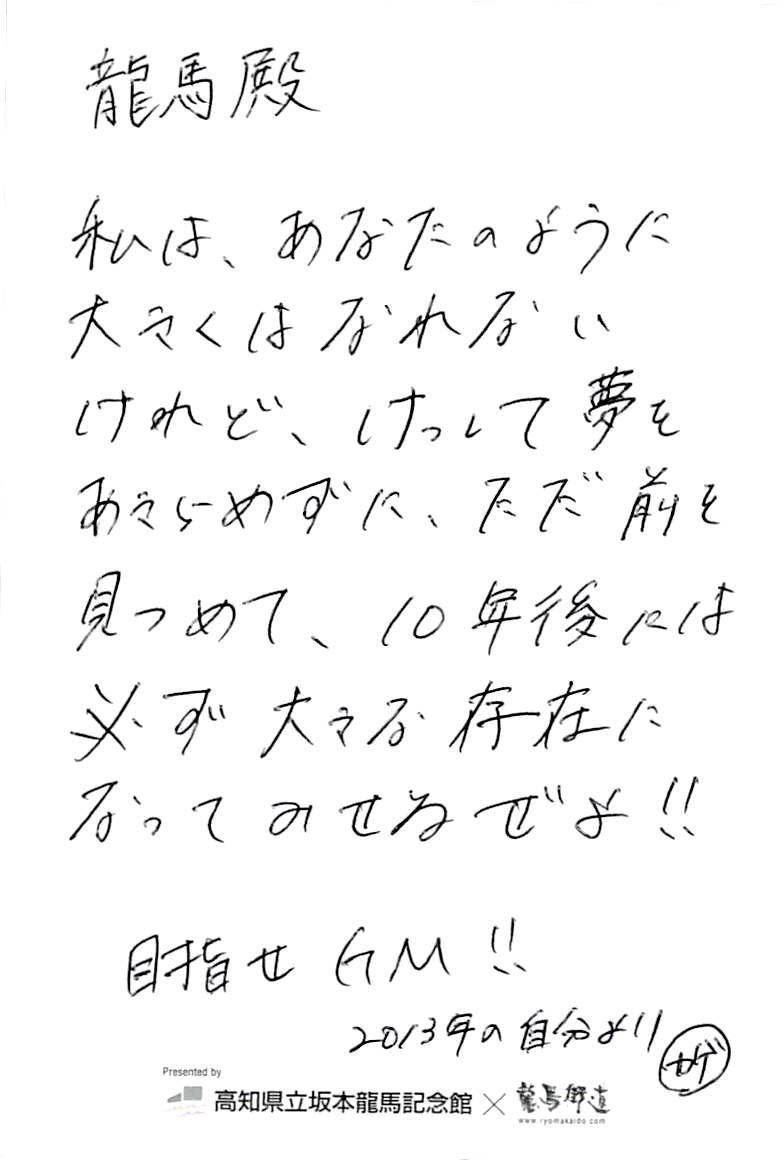 龍馬殿
私は、あなたのように
大きくはなれない
けれど、けっして夢を
あきらめずに、ただ前を
見つめて、10年後には
必ず大きな存在に
なってみせるぜよ!!
目指せ GM!!
2013年の自分より
カゲ
Presented by
高知県立坂本龍馬記念館×龍馬街道
www.ryomakaido.com